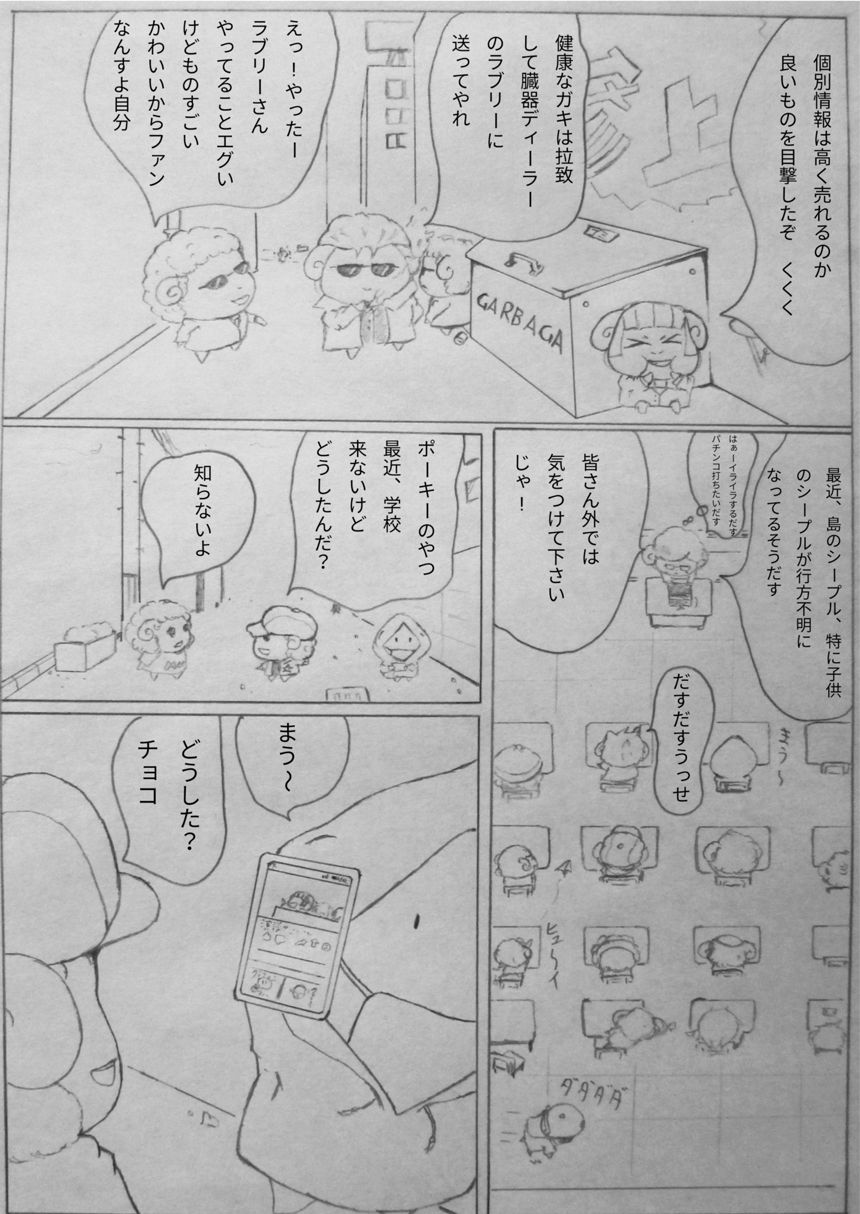 個別情報は高く売れるのか
良いものを目撃したぞ　くくく
健康なガキは拉致
して臓器ディーラー
のラブリーに
送ってやれ
えっ！やったー
ラブリーさん
やってることエグい
けどものすごい
かわいいからファン
なんすよ自分
GARBAGA
最近、島のシープル、特に子供
のシープルが行方不明に
なってるそうだす
はぁーイライラするだす
パチンコ打ちたいだす
皆さん外では
気をつけて下さい
じゃ！
だすだすうっせ
まう〜
ヒューイ
ダダダダ
ポーキーのやつ
最近、学校
来ないけど
どうしたんだ？
知らないよ
まう〜
どうした？
チョコ